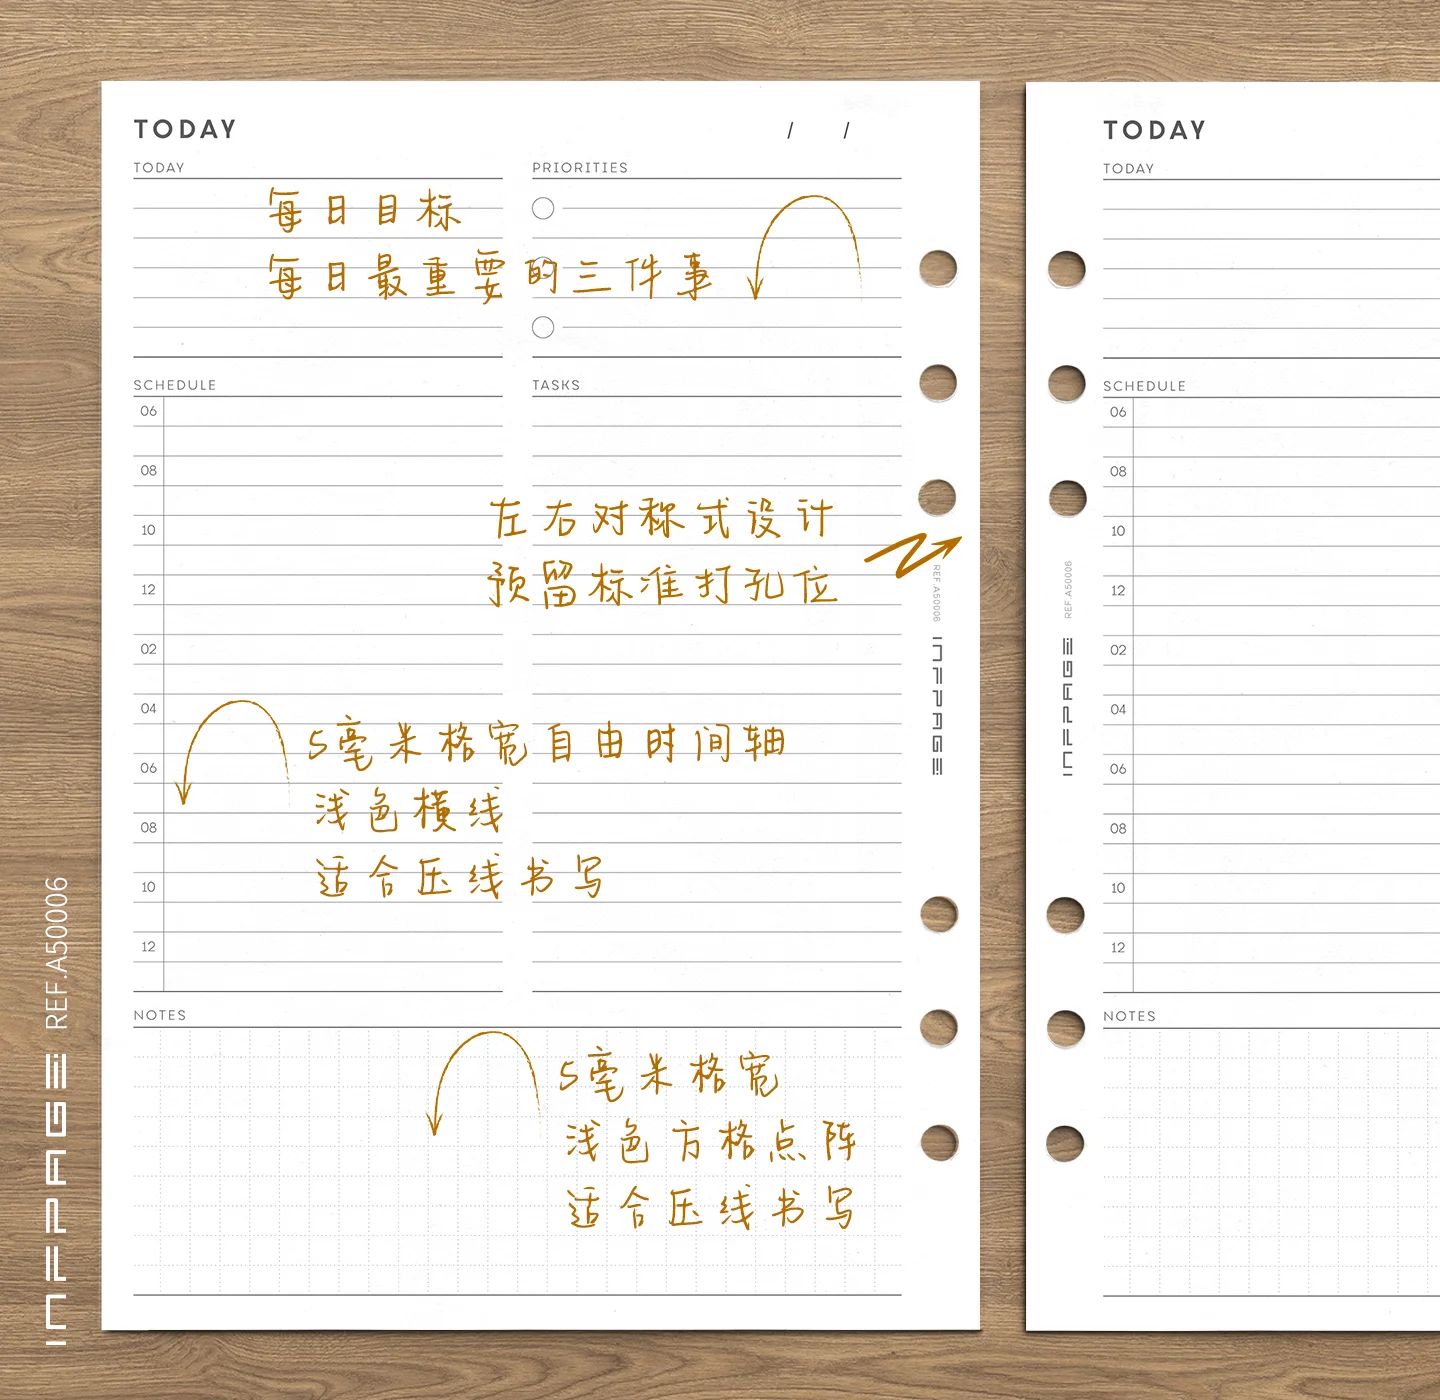 TODAY
/ /
TODAY
PRIORITIES
每日目标
每日最重要的三件事
SCHEDULE
TASKS
06
08
10
12
02
04
06
08
10
12
左右对称式设计
预留标准打孔位
5毫米格宽自由时间轴
浅色横线
适合压线书写
NOTES
5毫米格宽
浅色方格点阵
适合压线书写
REF.A50006
INFPAGE
TODAY
TODAY
SCHEDULE
06
08
10
12
02
04
06
08
10
12
NOTES
REF.A50006
INFPAGE
INFPAGE REF.A50006